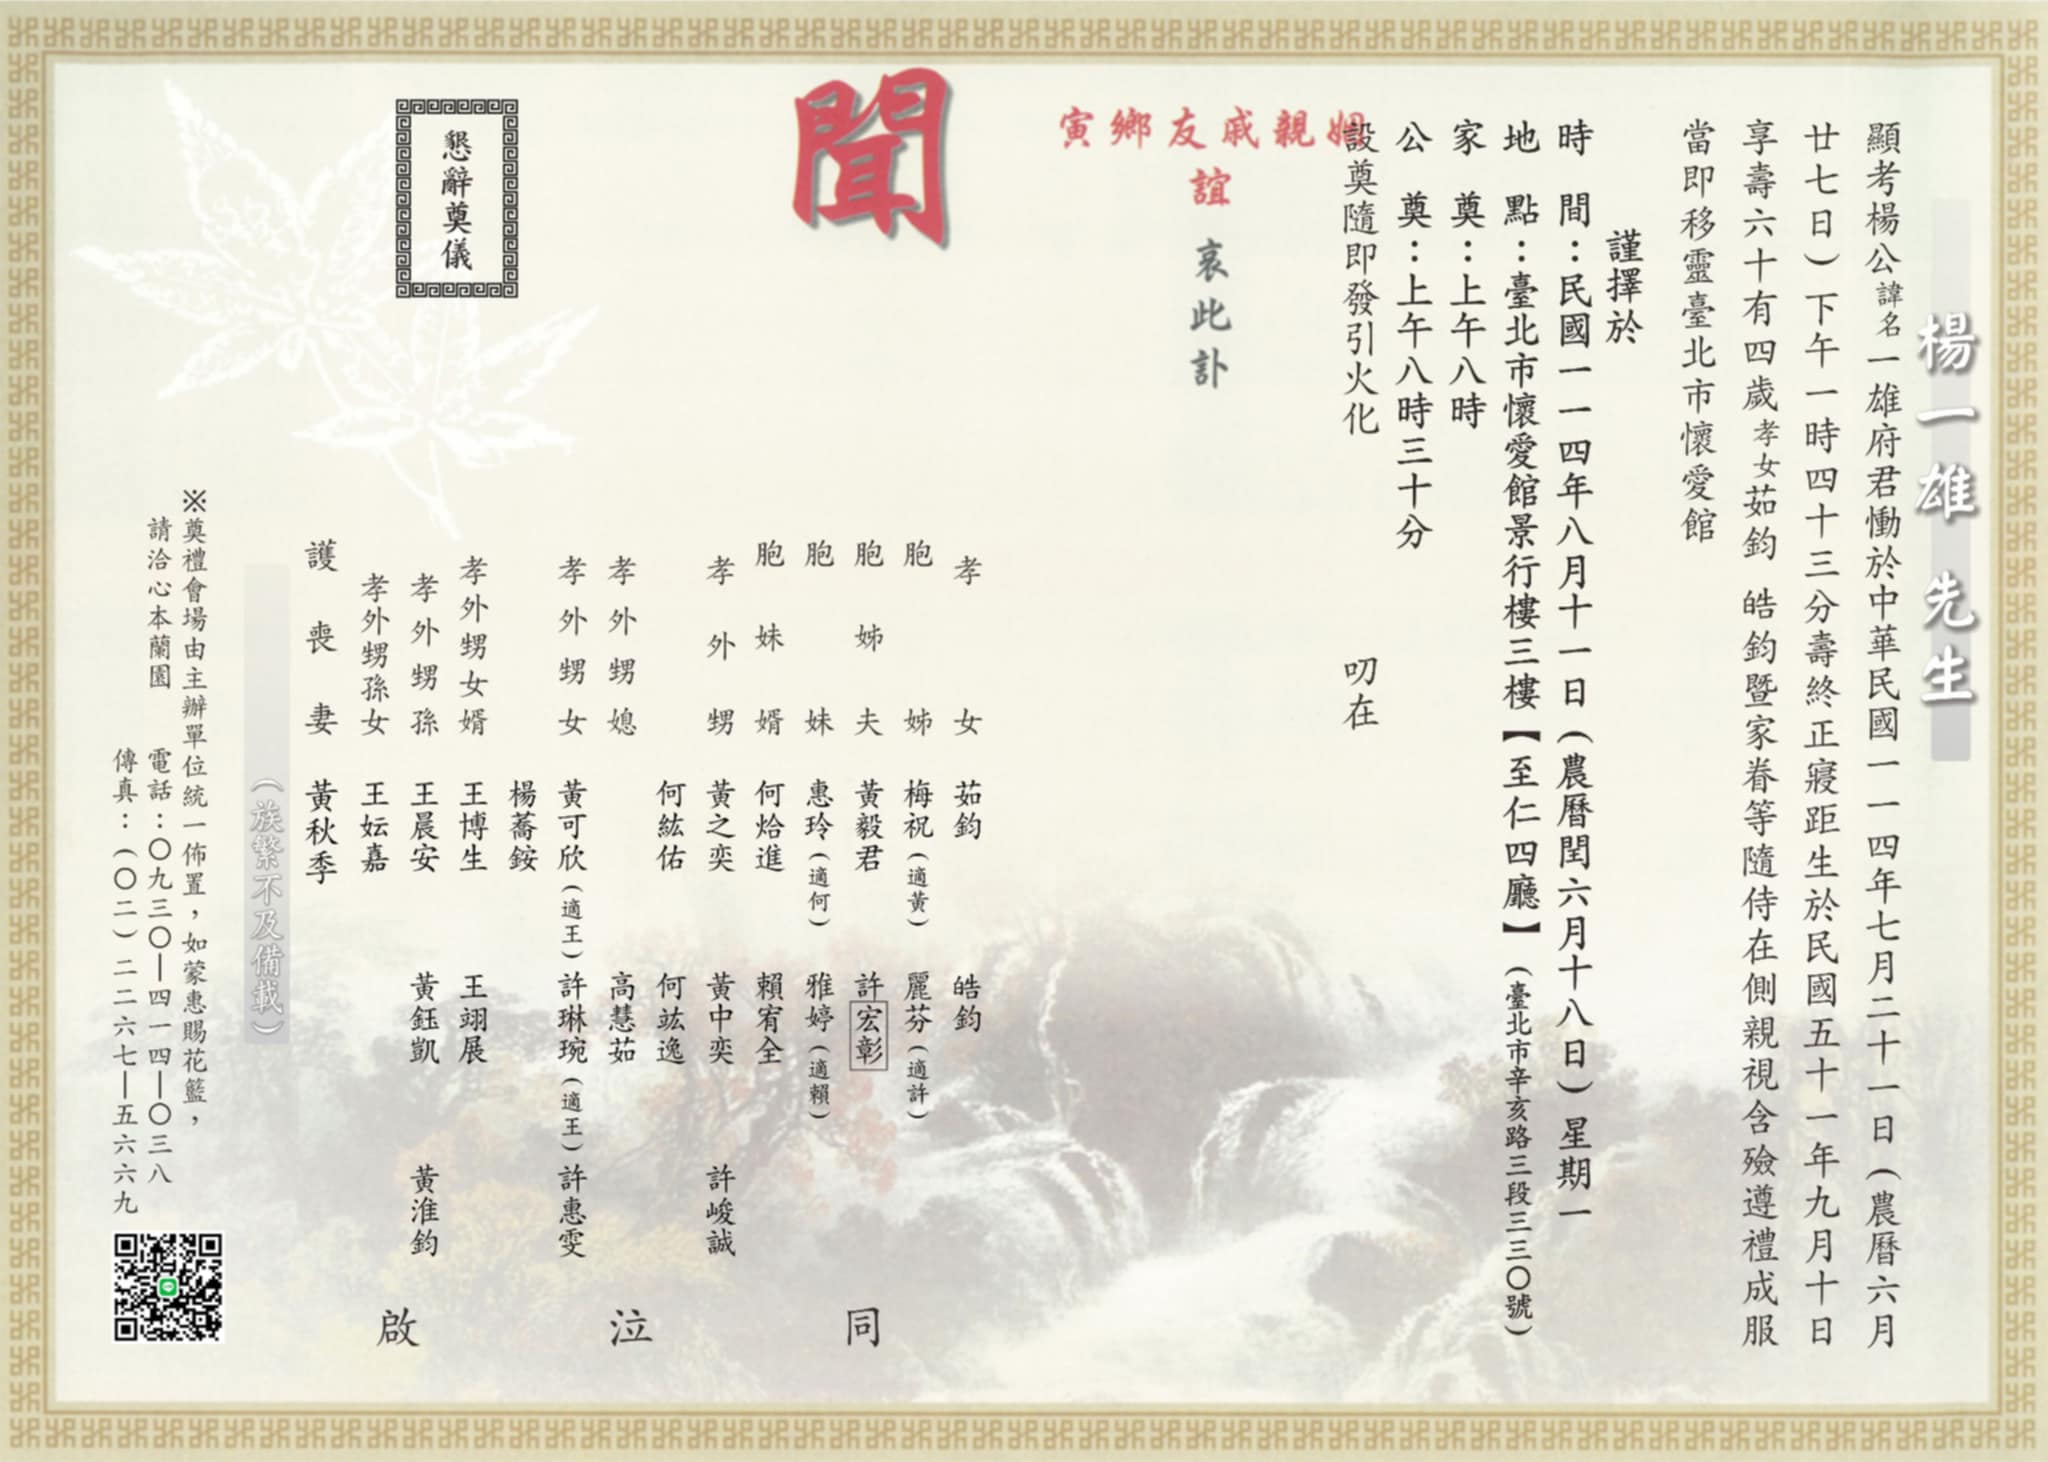 楊一雄 先生
顯考楊公諱名一雄府君慟於中華民國一一四年七月二十一日(農曆六月
廿七日)下午一時四十三分壽終正寢距生於民國五十一年九月十日
享壽六十有四歲孝女茹鈞 皓鈞暨家眷等隨侍在側親視含殮遵禮成服
當即移靈臺北市懷愛館
謹擇於
時 間：民國一一四年八月十一日(農曆閏六月十八日)星期一
地 點：臺北市懷愛館景行樓三樓【至仁四廳】(臺北市辛亥路三段三三〇號)
家 奠：上午八時
公 奠：上午八時三十分
設奠隨即發引火化 叨在
寅鄉友戚親姻
誼
哀此訃
聞
孝女 茹鈞 皓鈞
胞姊 梅祝(適黃) 麗芬(適許)
胞姊夫 黃毅君 許宏彰
胞妹 惠玲(適何) 雅婷(適賴)
胞妹婿 何烚進 賴宥全
孝外甥 黃之奕 黃中奕 許峻誠
何紘佑 何竑逸
孝外甥媳 高慧茹
孝外甥女 黃可欣(適王) 許琳琬(適王) 許惠雯
楊蕎銨
孝外甥女婿 王博生 王翊展
孝外甥孫 王晨安 黃鈺凱 黃淮鈞
孝外甥孫女 王妘嘉
護喪妻 黃秋季
同 泣 啟
(族繁不及備載)
懇辭奠儀
※奠禮會場由主辦單位統一佈置，如蒙惠賜花籃，
請洽心本蘭園 電話：〇九三〇—四一四—〇三八
傳真：(〇二)二二六七—五六六九